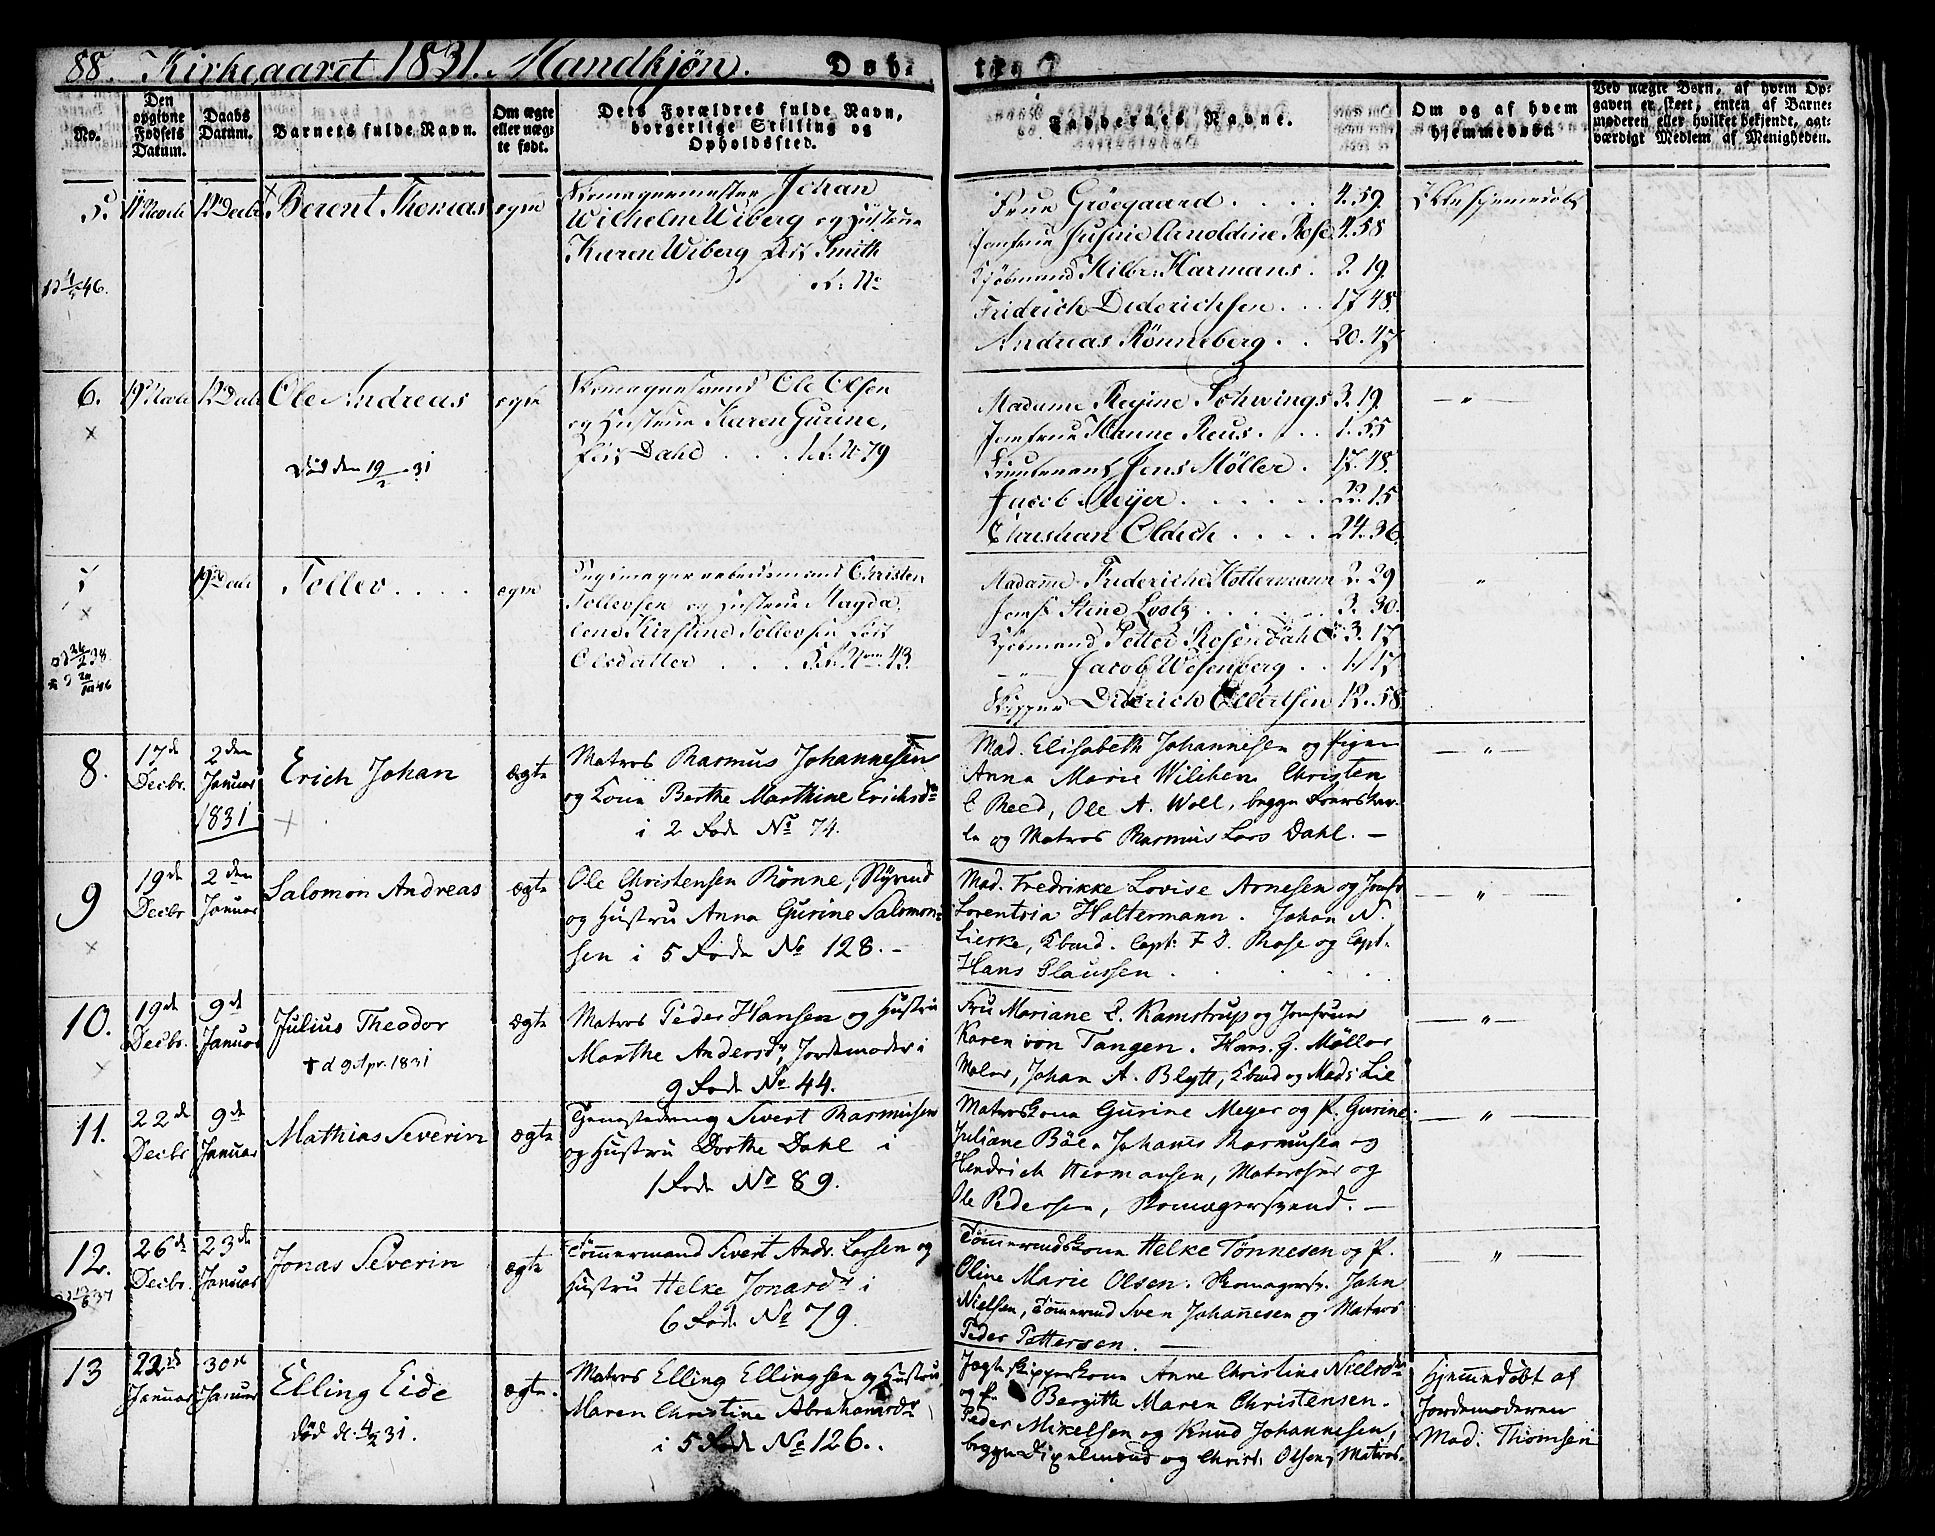 88. Kirkeaaret 1831. Mandkjøn. Døb-
te
No.
Den opgivne Fødsels Datum.
Daabs Datum.
Barnets fulde Navn.
Om ægte eller uæg-te født.
Dets Forældres fulde Navn, borgerlige Stilling og Opholdssted.
Faddernes Navne.
Om og af hvem hjemmedøbt.
Ved uægte Børn, af hvem Op-
gaven er skeet, enten af Barne-
moderen eller hvilket bekjendt, aat-
værdigt Medlem af Menigheden.
5. 12 Decbr Berent Thomas ægte
Skomagermester Johan
Wilhelm Wiberg og Hustrue
Karen Wiberg født Smith
Frue Grøegaard . . . . 4. 59.
Jomfrue Susine Arnoldine Rose 4. 58
Kjøbmand Hilbr. Harmans . 2. 19.
Fridrich Diderichsen . . . 17. 48.
Andreas Rönneberg . . 20. 47
Ikke hjemmedøbt
6. 12 Decbr Ole Andreas ægte
Død den 19/2 31
Skomagersvend Ole Olsen
og Hustrue Karen Gurine,
født Dahl . . .
Madame Regine Schwings 3. 19.
Jomfrue Hanne Reus . . . 1. 55
Lieutenant Jens Møller . 17. 48.
Jacob Meijer . . . . . 22. 15
Christian Oldich . . . . 24. 36.
— „ —
7 19 Decbr Tollev . . . . ægte
Christen
Tollevsen og Hustrue Magda-
lene Kirstine Tollevsen født
Olsdatter . . .
Madame Frideriche Holtermann 2. 29
Jomf. Stine Lootz . . . . . 3. 30.
Kjøbmand Petter Rosendahl 3. 17
Jacob Wesenberg . . 1. 17.
Skipper Diderich Ellertsen 12. 58.
„
8. 17de Decbr. 2den Januar 1831 Erich Johan ægte
Matros Rasmus Johannesen
og Kone Berthe Marthine Erichsdr
i 2 Rode No 74.
Mad. Elisabeth Johannesen og Pigen
Anna Marie Wilchen. Christen
E Reed, Ole A. Woll, begge
og Matros Rasmus Lars Dahl. —
— „ —
9 19de Decbr 2den Januar Salomon Andreas ægte
Ole Christensen Rönne,
og Hustru Anna Gurine Salomon-
sen i 5 Rode No 128. —
Mad. Fredrikke Lovise Arnesen og Jomfr
Lorentzia Holtermann. Johan N.
Lierke, Kbmd. Capt: F D. Rose og Capt.
Hans Claussen.
— „ —
10. 19de Decbr. 9de Januar Julius Theodor ægte
† d 9 Apr. 1831
Matros Peder Hansen og Hustru
Marthe Andersdr, Jordemoder i
9 Rode No 44.
Fru Mariane E. Kamstrup og Jomfruen
Karen von Tangen. Hans. G. Møller
Maler, Johan A. Blytt, Kbmd og Mads Lie
— „ —
11. 22de Decbr 9de Januar Mathias Severin ægte
Sivert Rasmusen
og Hustru Dorthe Dahl i
1 Rode No 89.
Matroskone Gurine Meyer og P. Gurine
Juliane Böe. Johanes Rasmusen og
Hendrich Hermansen, Matroser og
Ole Pedersen, Skomagersvend. —
— „ —
12. 26de Decbr. 23de Januar Jonas Severin ægte
Tømmermand Sivert Andr. Larsen og
Hustru Helke Jonasdr i
6 Rode No 79.
Tømmermdskone Helke Tönnesen og P.
Oline Marie Olsen. Skomagersv. John
Nielsen, Tømmermd Sven Johannesen og Matros
Peder Pettersen. —
— „ —
13 22de Januar 30te Januar Elling Eide ægte.
død d. 4/2 31.
Matros Elling Ellingsen og Hustru
Maren Christine Abrahamsdr
i 5 Rode No 126.
Jagteskipperkone Anne Christine Nielsdr
og P. Bergitte Maren Christensen.
Peder Mikelsen og Knud Johannesen,
begge og Christ. Olsen, Matros.
Hjemmedøbt af
Jordemoderen
Mad. Thomsen